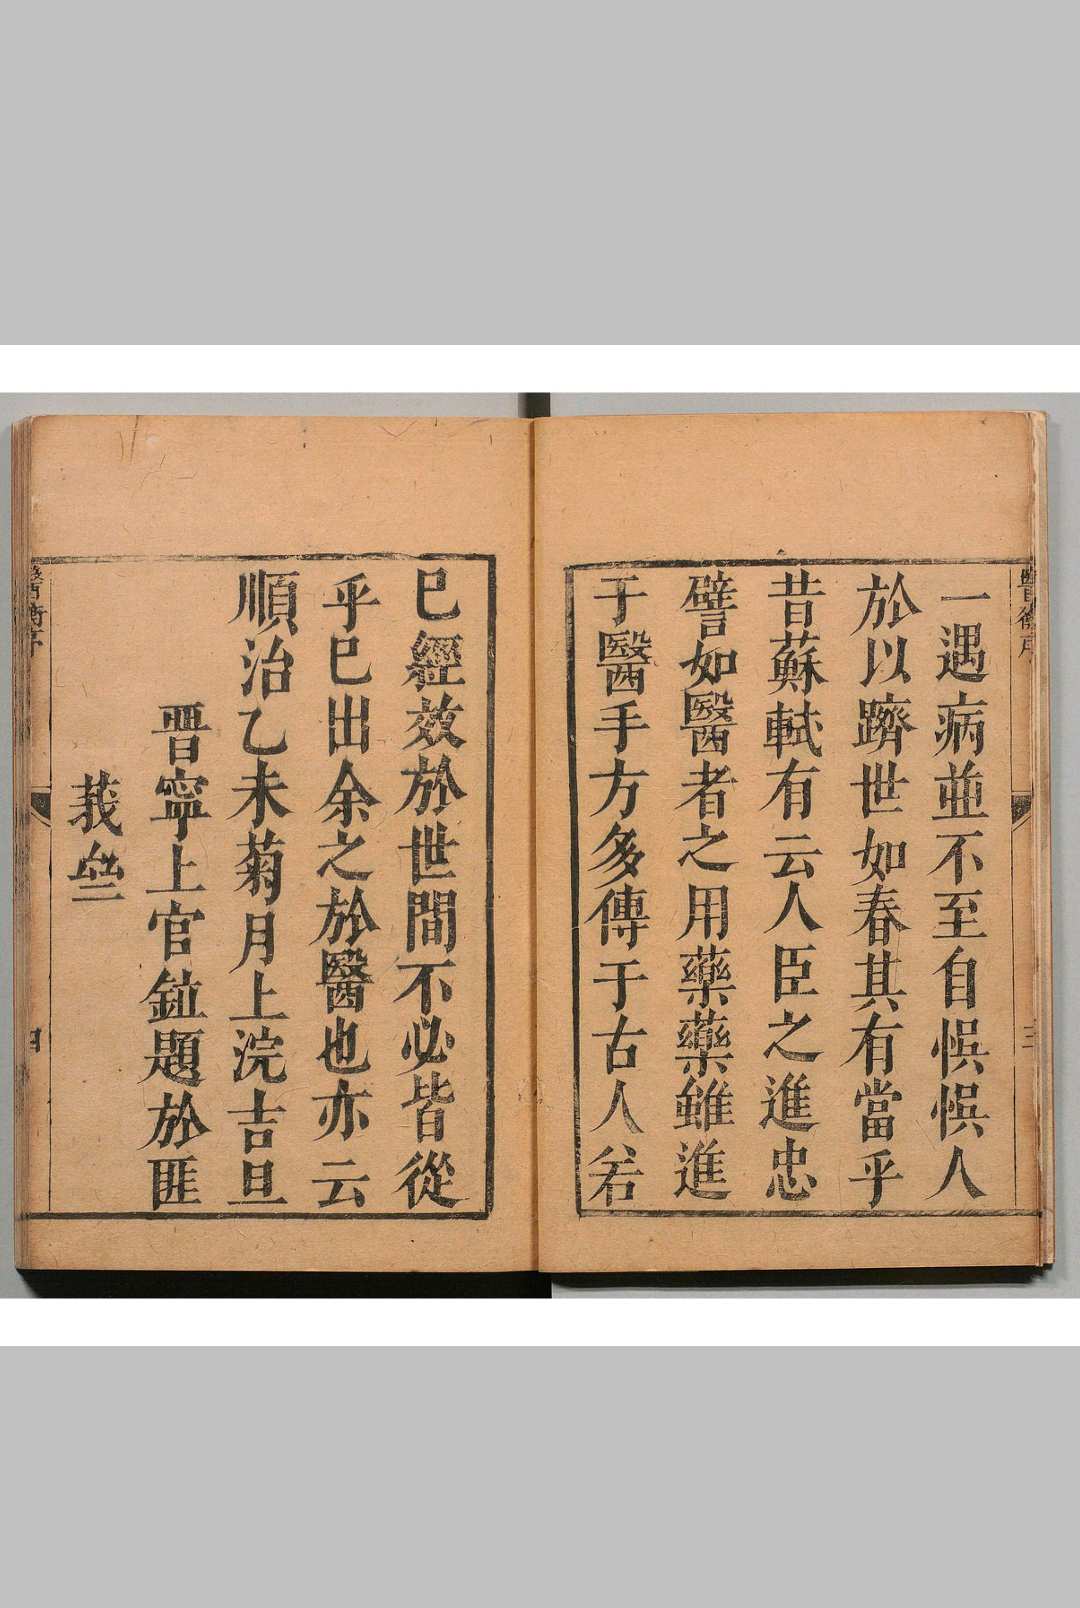 一遇病並不至自悞悞人
於以躋世如春其有當乎
昔蘇軾有云人臣之進忠
譬如醫者之用藥藥雖進
于醫手方多傳于古人若
已經效於世間不必皆從
乎已出余之於醫也亦云
順治乙未菊月上浣吉旦
晋寧上官鉝題於匪
莪
醫衡序
三
四